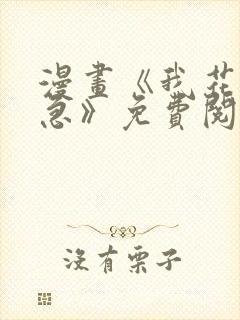 漫畫《我花
急》免費閱
沒有栗子